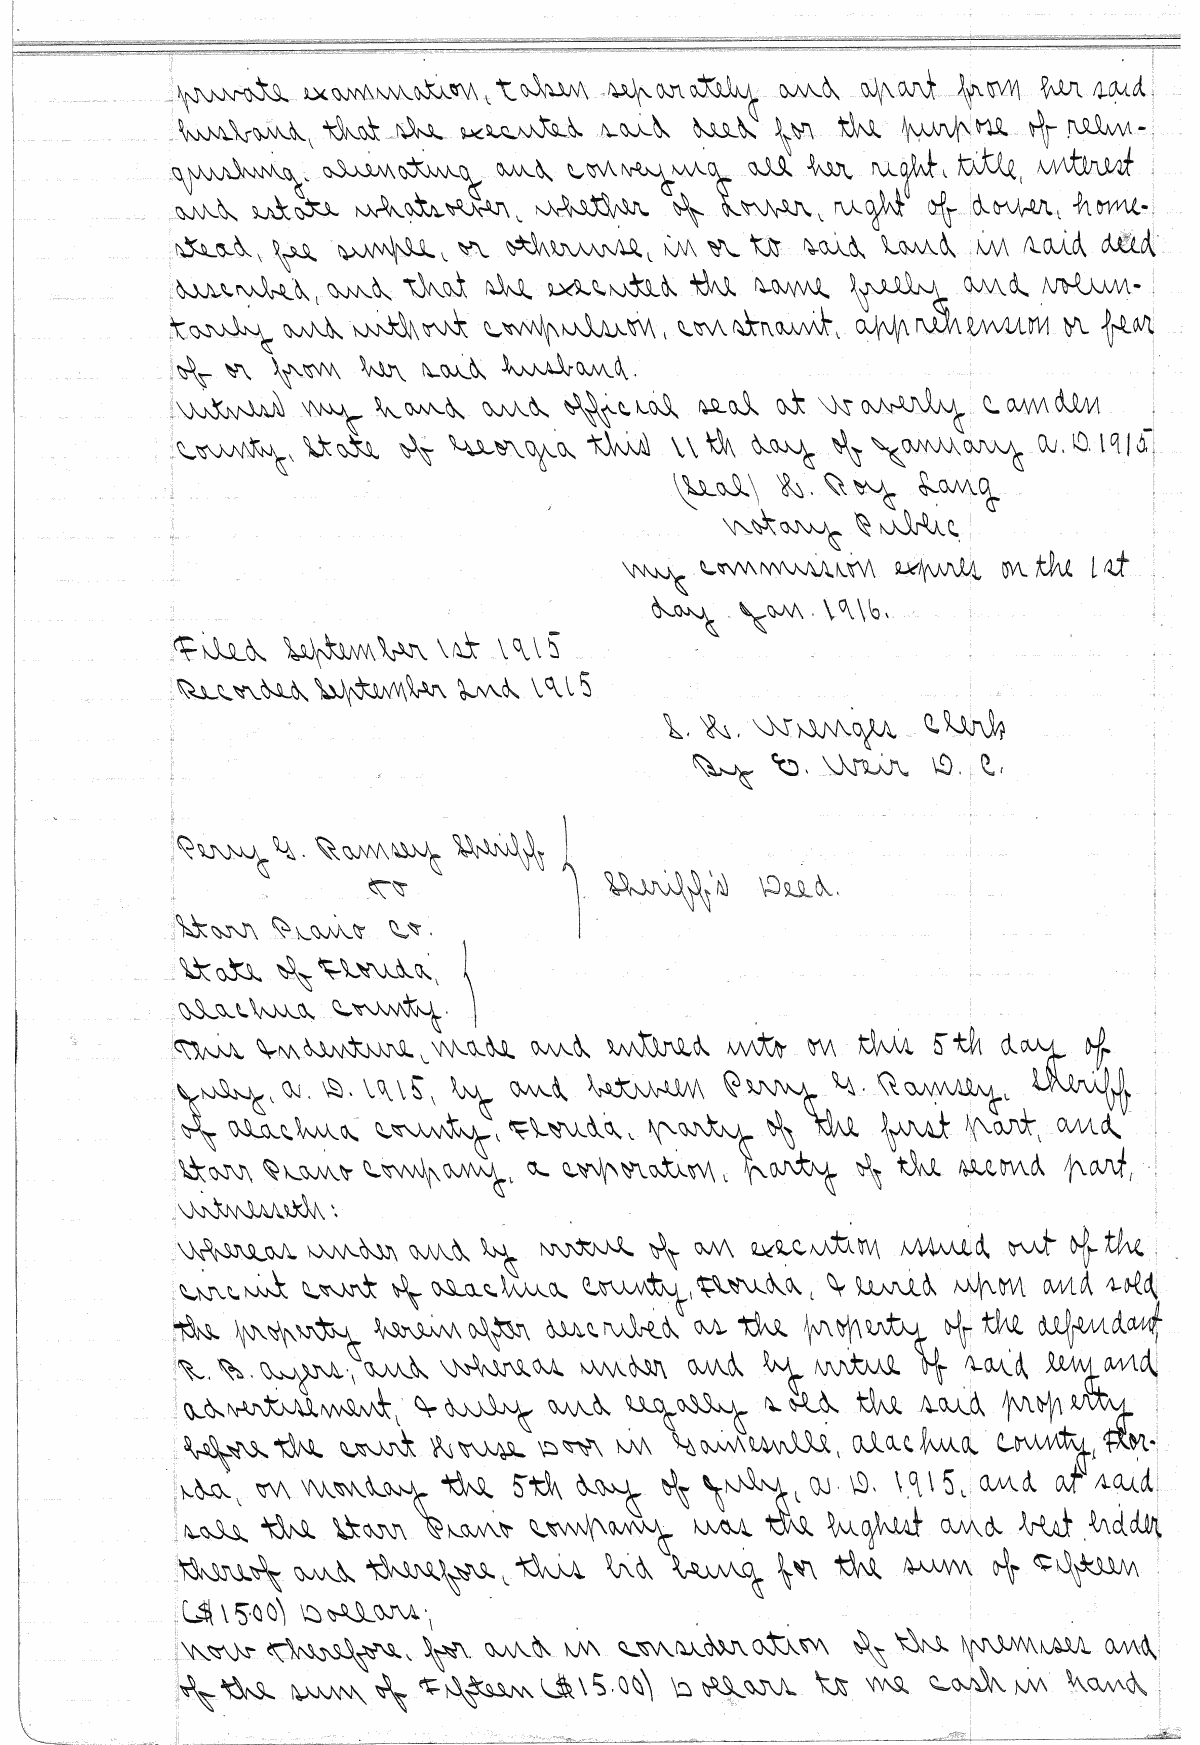 private examination, taken separately and apart from her said
husband, that she executed said deed for the purpose of relin-
quishing, alienating and conveying all her right, title, interest
and estate whatsoever, whether of dower, right of dower, home-
stead, fee simple, or otherwise, in or to said land in said deed
described, and that she executed the same freely and volun-
tarily and without compulsion, constraint, apprehension or fear
of or from her said husband.
Witness my hand and official seal at Waverly Camden
County, State of Georgia this 11th day of January A.D. 1915
(Seal) H. Roy Lang
Notary Public
My commission expires on the 1st
day Jan. 1916.
Filed September 1st 1915
Recorded September 2nd 1915
S. H. Wienges Clerk
By E. Weir D. C.
Perry G. Ramsey Sheriff
to
Sheriff's Deed.
Starr Piano Co.
State of Florida,
Alachua County.
This Indenture, made and entered into on this 5th day of
July, A. D. 1915, by and between Perry G. Ramsey, Sheriff
of Alachua County, Florida, party of the first part, and
Starr Piano Company, a corporation, party of the second part,
Witnesseth:
Whereas under and by virtue of an execution issued out of the
circuit court of Alachua County, Florida, I levied upon and sold
the property hereinafter described as the property of the defendant
R. B. Ayers; and whereas under and by virtue of said levy and
advertisement, I duly and legally sold the said property
before the Court House Door in Gainesville, Alachua County, Flor-
ida, on Monday the 5th day of July, A. D. 1915, and at said
sale the Starr Piano Company was the highest and best bidder
thereof and therefore, this bid being for the sum of Fifteen
($15.00) Dollars;
Now Therefore, for and in consideration of the premises and
of the sum of Fifteen ($15.00) Dollars to me cash in hand